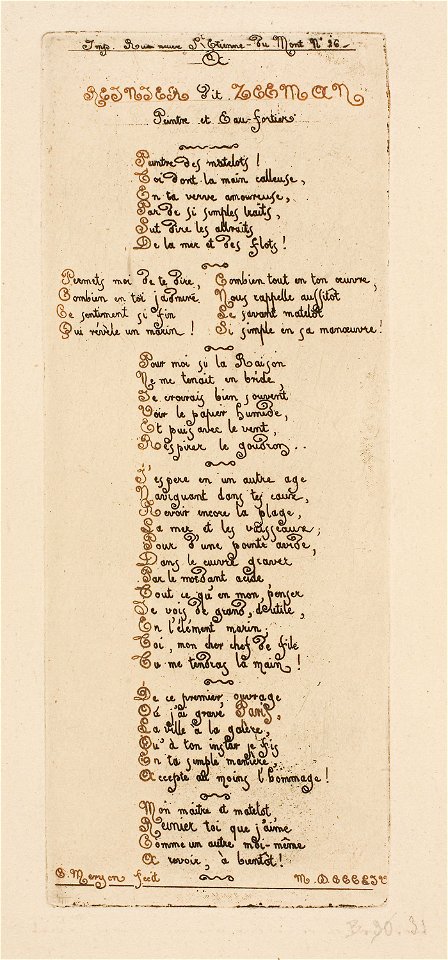 Imp. Rue neuve St Etienne-du Mont No 26
A
REINIER dit ZEEMAN
Peintre et Eau-fortier
Peintre des matelots !
Toi dont la main calleuse,
En ta verve amoureuse,
Par de si simples traits,
Sut dire les attraits
De la mer et des flots !
Permets moi de te dire,
Combien en toi j'admire
Ce sentiment si fin
Qui révèle un marin !
Combien tout en ton œuvre,
Nous rappelle aussitôt
Le savant matelot
Si simple en sa manœuvre !
Pour moi si la Raison
Ne me tenait en bride,
Je croirais bien souvent
Voir le papier humide,
Et puis avec le vent,
Respirer le goudron..
J'espere en un autre age
Naviguant dans tes eaux,
Revoir encore la plage,
La mer et les vaisseaux;
Pour d'une pointe avide,
Dans le cuivre graver
Par le mordant acide
Tout ce qu'en mon penser
Je vois de grand, d'utile,
En l'élément marin,
Toi, mon cher chef de file
Tu me tendras la main !
De ce premier ouvrage
Où j'ai gravé Paris,
La ville à la galère,
Qu'à ton instar je fis
En ta simple manière,
Accepte au moins l'hommage !
Mon maitre et matelot
Reinier toi que j'aime
Comme un autre moi-même
A revoir, à bientôt !
C. Meryon fecit
M. DCCCLIV